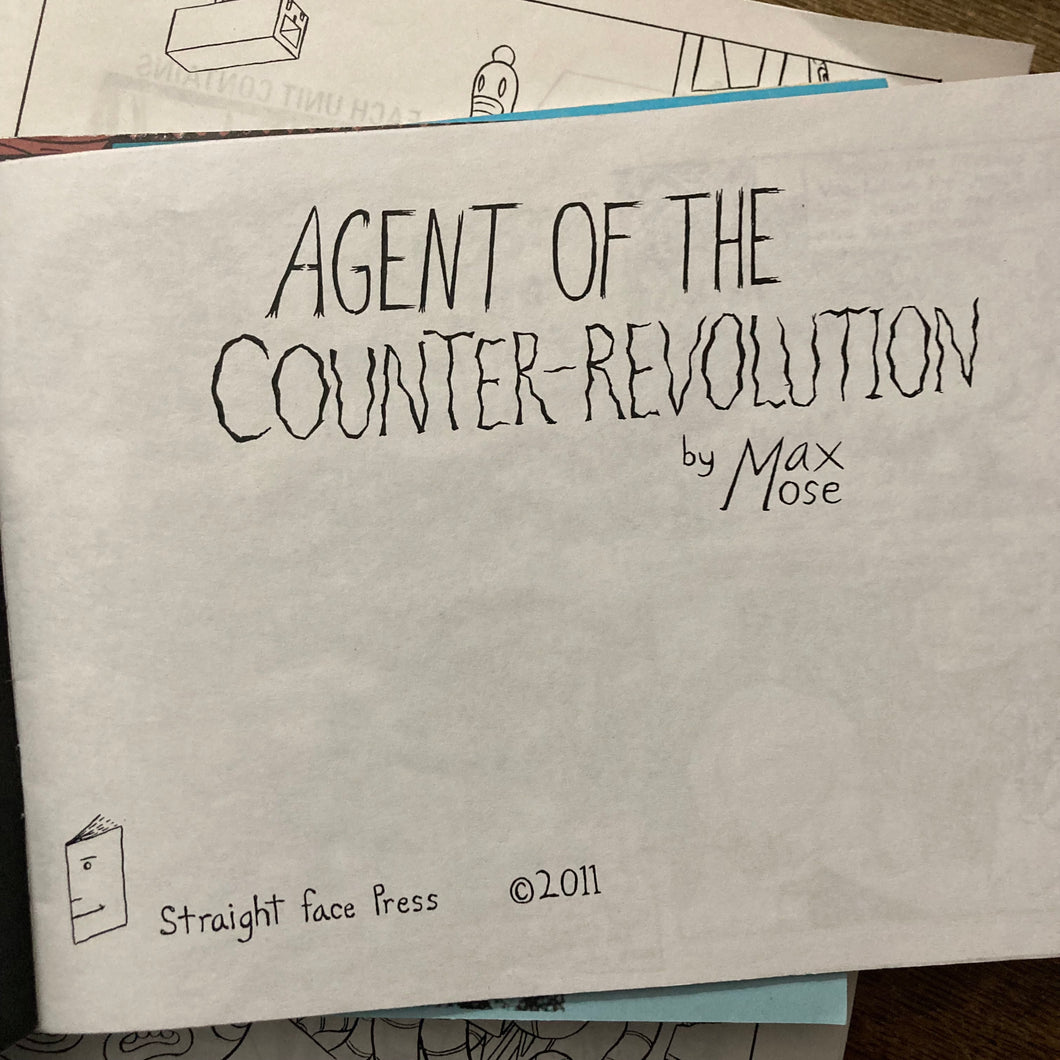 EACH UNIT CONTAINS
AGENT OF THE
COUNTER-REVOLUTION
by Max
Mose
Straight face Press ©2011